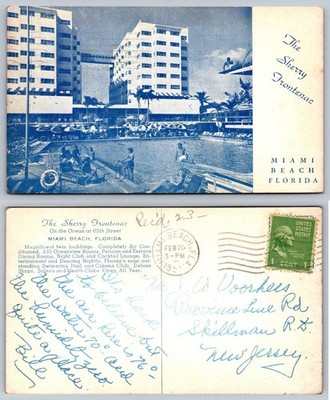 The Sherry
Frontenac
MIAMI
BEACH
FLORIDA
The Sherry Frontenac
On the Ocean at 65th Street
MIAMI BEACH, FLORIDA
Magnificent twin buildings. Completely Air Con-
ditioned. 250 Oceanview Rooms. Patrician and Terrace
Dining Rooms, Night Club and Cocktail Lounge. En-
tertainment and Dancing Nightly. Florida's most out-
standing Swimming Pool and Cabana Club. Deluxe
Shops. Solaria and Health Clubs. Open All Year.
Rec'd. 23-
MIAMI BEACH, FLA.
FEB 20
3-PM
UNITED STATES POSTAGE
Voorhees
Province Line Rd
Skillman R.D.
New Jersey.
the water 76°-
70° and
the humidity zero.
Quite a place
Bill